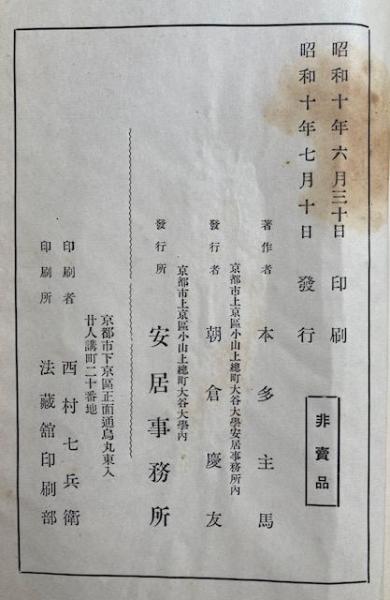 昭和十年六月三十日 印刷
昭和十年七月十日 發行
非賣品
著作者 本多主馬
京都市上京區小山上總町大谷大學安居事務所內
發行者 朝倉慶友
京都市上京區小山上總町大谷大學內
發行所 安居事務所
京都市下京區正面通烏丸東入
廿人講町二十番地
印刷者 西村七兵衛
印刷所 法藏館印刷部